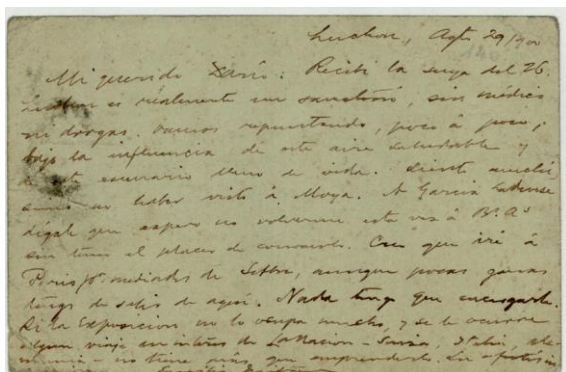 Luchon, Agto 29/900
Mi querido Darío: Recibí la suya del 26.
Luchon es realmente un sanatorio, sin médico
ni drogas. Vamos repuntando, poco á poco,
bajo la influencia de este aire saludable y
de este escenario lleno de vida. Siento mucho
no haber visto á Moya. A García Ladevese
dígale que espero no volverme esta vez á Bs. As
sin tener el placer de conocerlo. Creo que iré á
París pr. mediados de Setbre, aunque pocas ganas
tengo de salir de aquí. Nada tengo que encargarle.
Si la Exposicion no lo ocupa mucho, y se le ocurre
algun viaje en interes de La Nacion - Suiza, Italia, Ale-
mania - no tiene más que emprenderlo. Lo